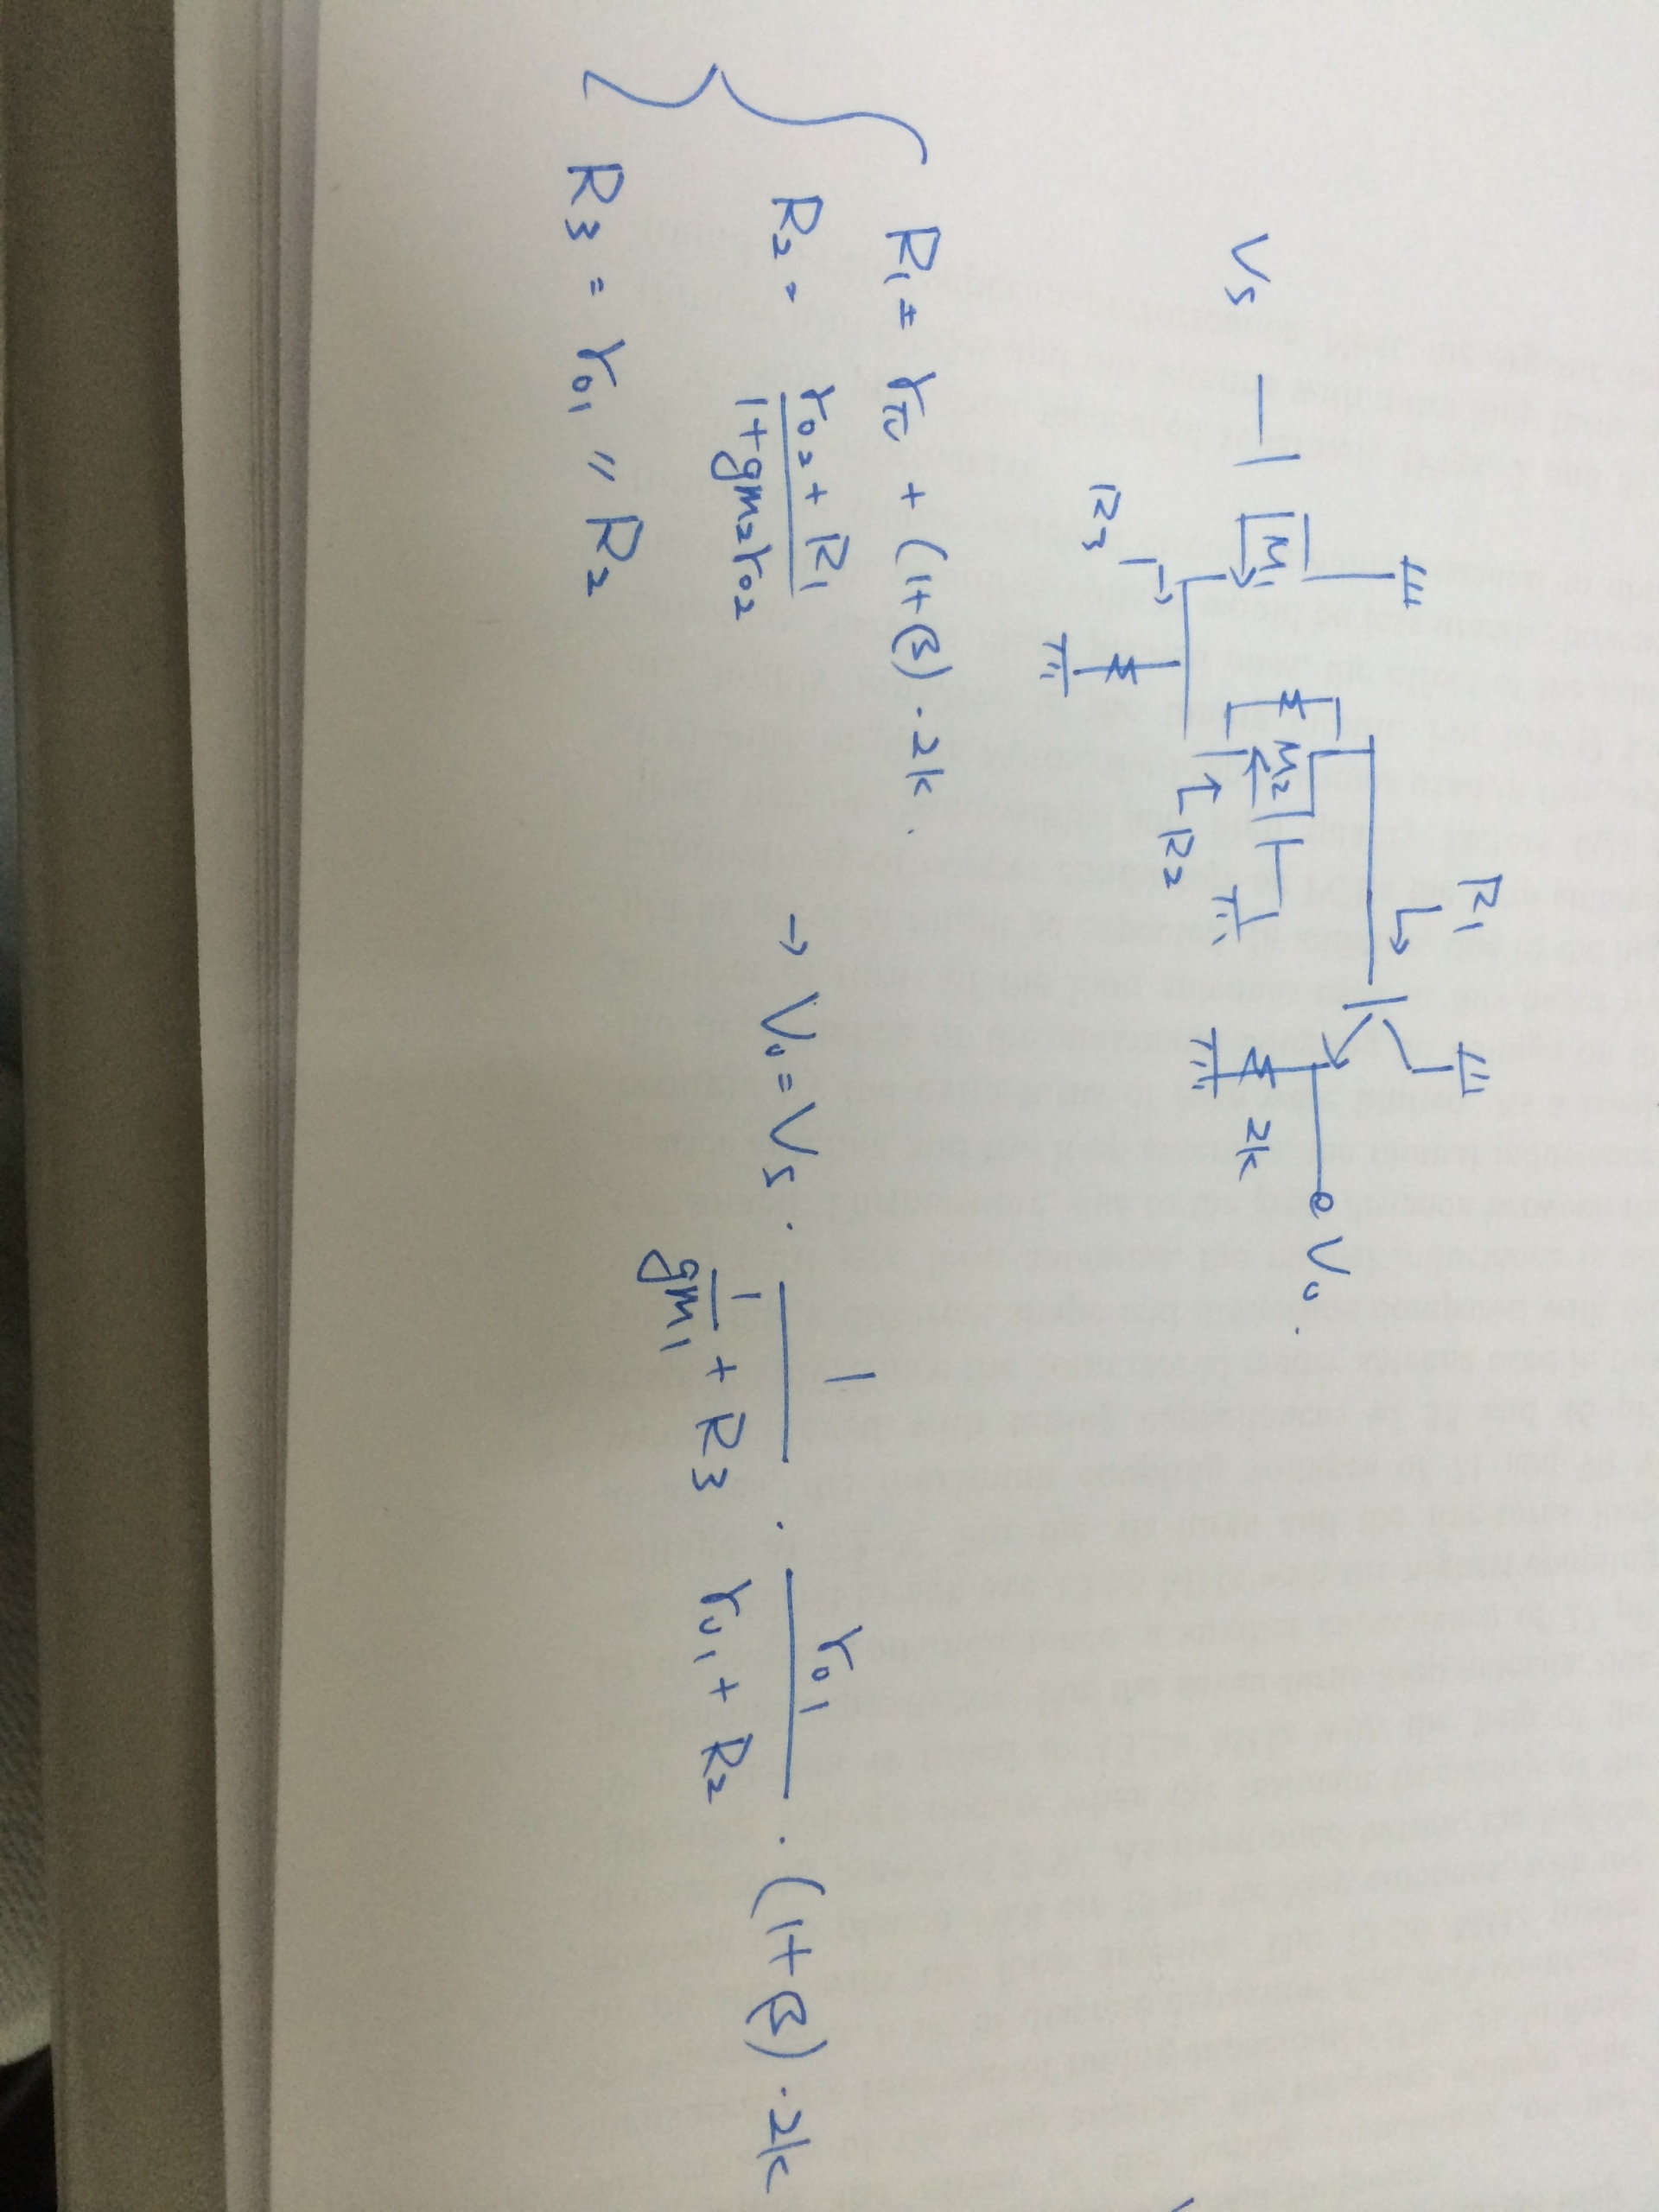 Vs
M1
R3
M2
R2
R1
2k
Vo
R1 = rπ + (1+β)·2k.
R2 = (ro2 + R1) / (1+gm2ro2)
R3 = ro1 // R2
→ Vo = Vs · 1 / (1/gm1 + R3) · ro1 / (ro1 + R2) · (1+β)·2k